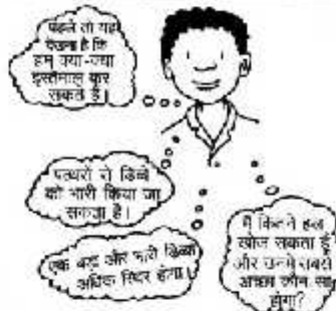 पहले तो यह
देखना है कि
हम क्या-क्या
इस्तेमाल कर
सकते हैं।
पत्थरों से डिब्बे
को भारी किया जा
सकता है।
एक बड़ा और भारी डिब्बा
अधिक स्थिर होगा।
मैं कितने हल
खोज सकता हूँ
और उनमें सबसे
अच्छा कौन सा
होगा?